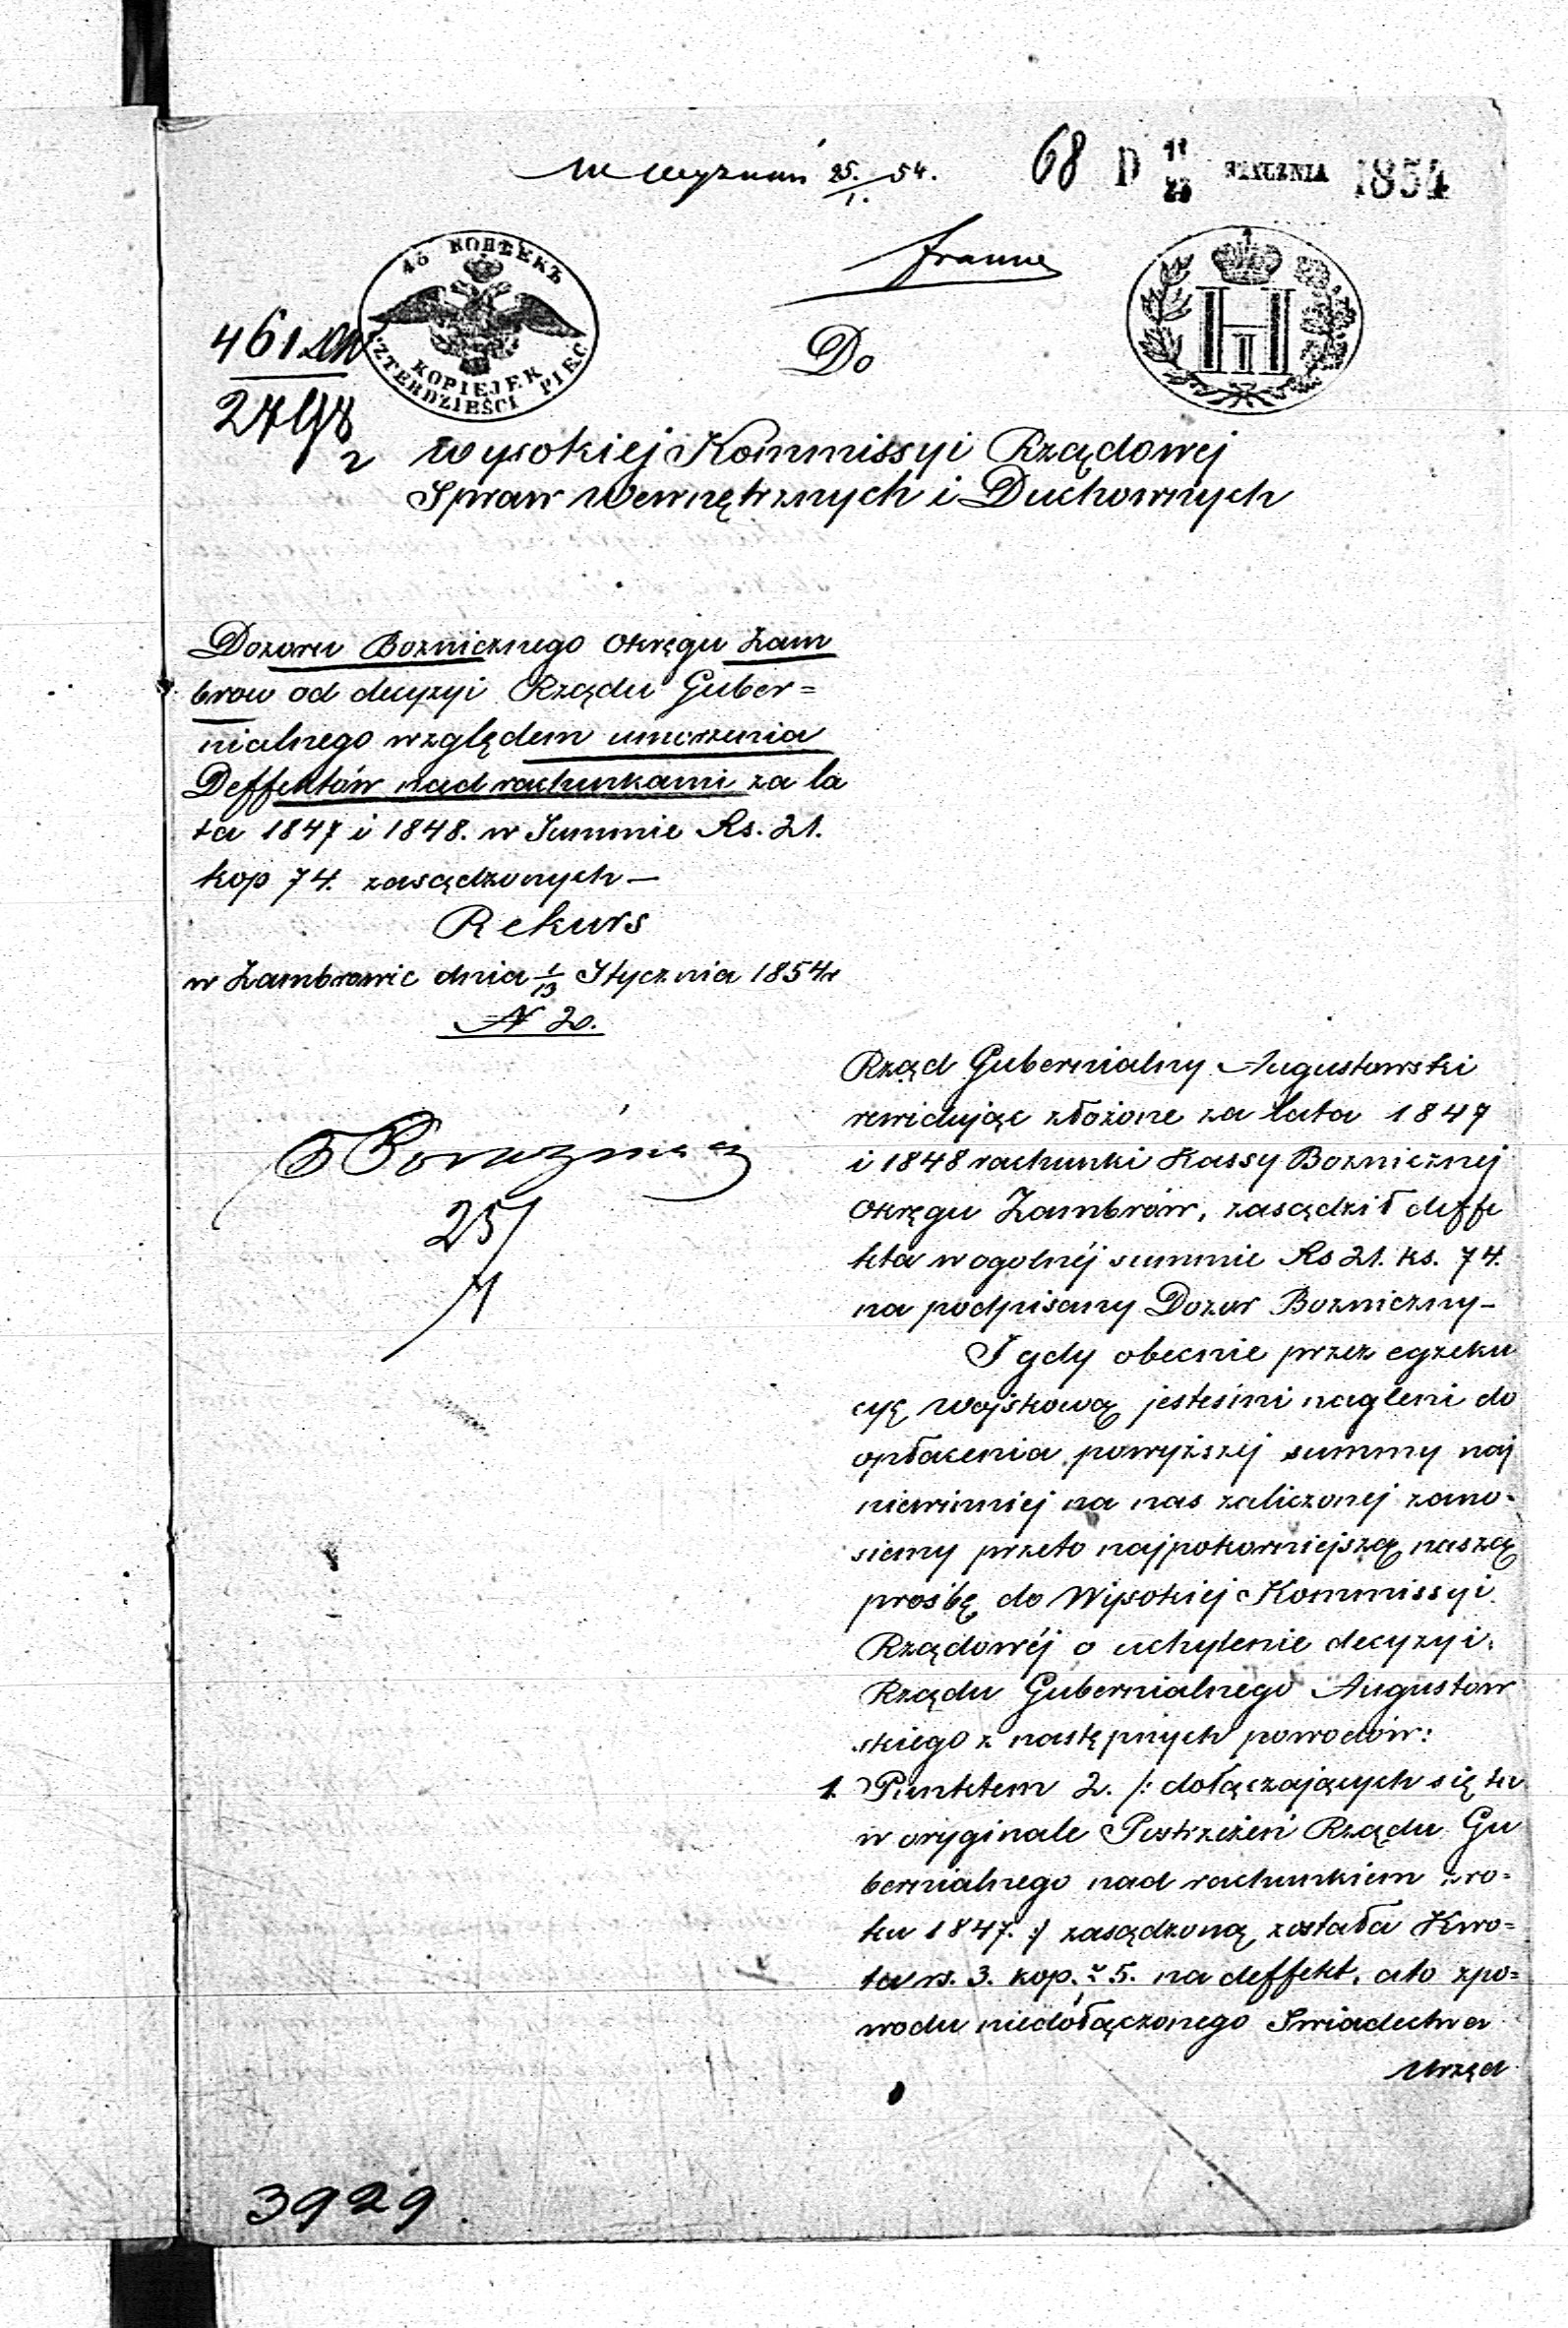 w wyznań 25./1. 54.
68 D 11/23 STYCZNIA 1854
45 КОПѢЕКЪ
KOPIEJEK
CZTERDZIEŚCI PIĘĆ
H I
461
2798
2
Do
Wysokiej Kommissyi Rządowej
Spraw Wewnętrznych i Duchownych
Dozoru Boznicznego Okręgu Zam
brow od decyzyi Rządu Guber=
nialnego względem umorzenia
Deffektów nad rachunkami za la
ta 1847 i 1848. w Summie Rs. 21.
kop 74. zasądzonych —
Rekurs
w Zambrowie dnia 1/13 Stycznia 1854r
N 20.
25/1
Rząd Gubernialny Augustowski
rewidując złożone za lata 1847
i 1848 rachunki Kassy Boznicznej
Okręgu Zambrów, zasądził deffe
kta w ogolnéj summie Rs 21. ks. 74.
na podpisany Dozor Bozniczny —
I gdy obecnie przez egzeku
cyę Wojskową jesteśmi nagleni do
opłacenia powyższej summy naj
niewinniej na nas zaliczonej zano-
siemy przeto najpokorniejszą naszą
prośbę do Wysokiej Kommissyi
Rządowéj o uchylenie decyzyi
Rządu Gubernialnego Augustow
skiego z następnych powodów:
1. Punktem 2. /: dołączających się tu
w oryginale Postrzeżeń Rządu Gu
bernialnego nad rachunkiem z ro=
ku 1847. :/ zasądzoną została Kwo=
ta rs. 3. kop. 5. na deffekt, a to z po=
wodu niedołączonego Swiadectwa
Urzęd
3929.